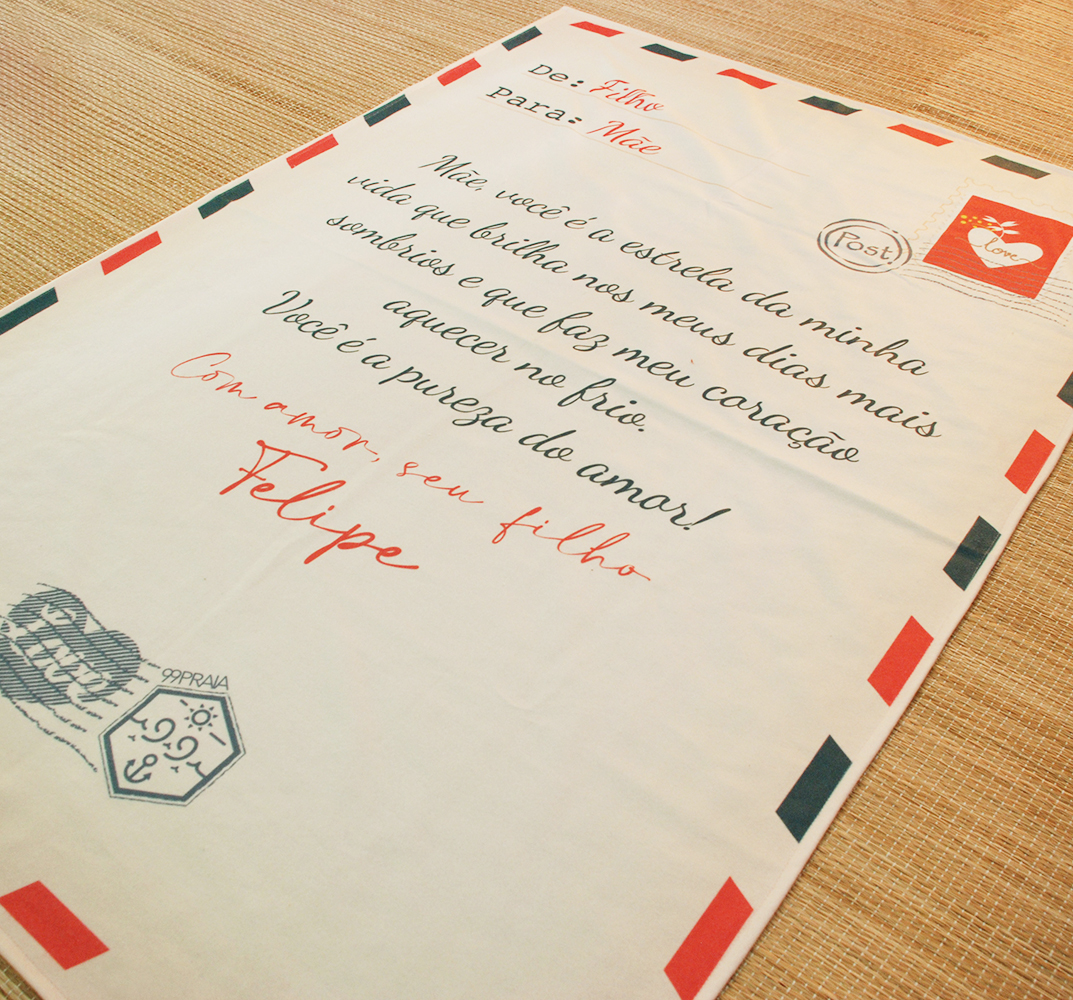 De: Filho
Para: Mãe
Post.
love
Mãe, você é a estrela da minha
vida que brilha nos meus dias mais
sombrios e que faz meu coração
aquecer no frio.
Você é a pureza do amor!
Com amor, seu filho
Felipe
99PRAIA